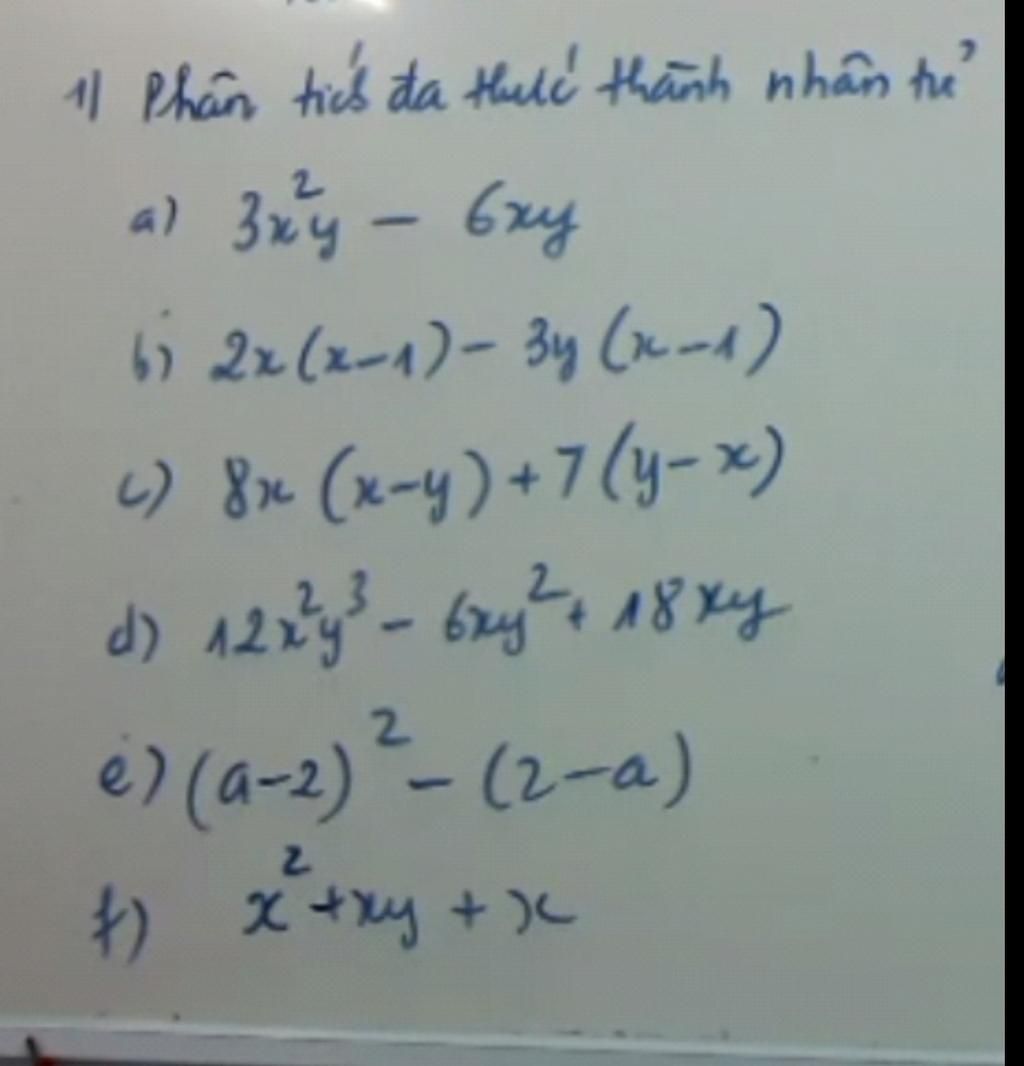 1) Phân tích đa thức thành nhân tử
a) 3x²y - 6xy
b) 2x(x-1) - 3y(x-1)
c) 8x(x-y) + 7(y-x)
d) 12x²y³ - 6xy² + 18xy
e) (a-2)² - (2-a)
f) x² + xy + x